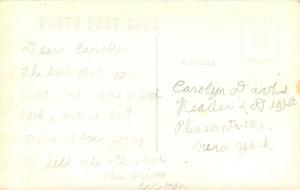 PHOTO POST CARD
Dear Carolyn
The book that you
sent me was a good
book, but I don't
think I am going
to
Carolyn
ADDRESS
Carolyn Davis
Reader's Digest
Pleasantville
New York